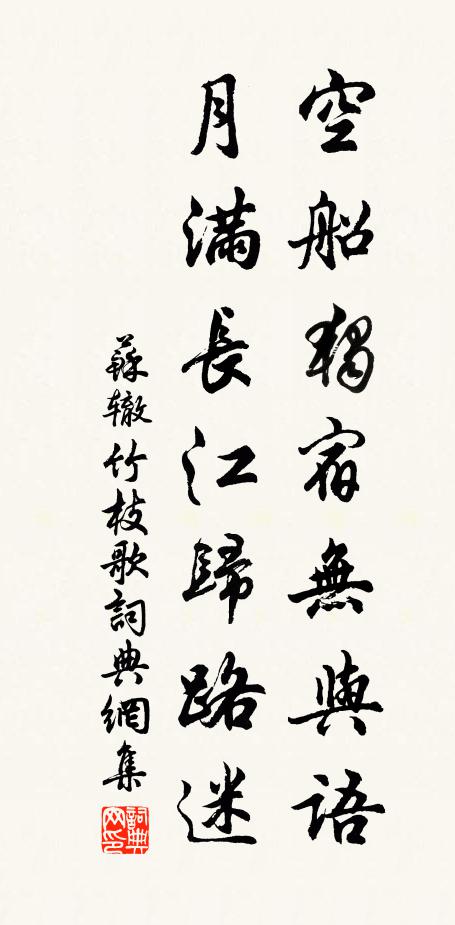 空船獨宿無與語
月滿長江歸路迷
蘇辙竹枝歌詞典網集
詞典网印